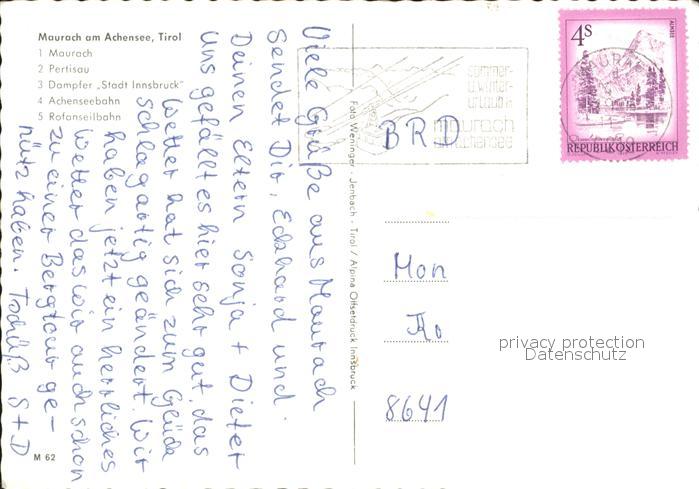 Maurach am Achensee, Tirol
1 Maurach
2 Pertisau
3 Dampfer „Stadt Innsbruck"
4 Achenseebahn
5 Rofanseilbahn
Viele Grüße aus Maurach
sendet Dir, Eckhard und
Deinen Eltern Sonja + Dieter
Uns gefällt es hier sehr gut, das
Wetter hat sich zum Glück
schlagartig geändert. Wir
haben jetzt ein herrliches
Wetter das wir auch schon
zu einer Bergtour ge-
nützt haben. Tschüß S+D
M 62
Foto Weninger - Jenbach - Tirol / Alpina Offsetdruck Innsbruck
sommer-
u. winter-
urlaub in
maurach
am achensee
4S
ALMSEE
REPUBLIK ÖSTERREICH
BRD
Mon
8641
privacy protection
Datenschutz